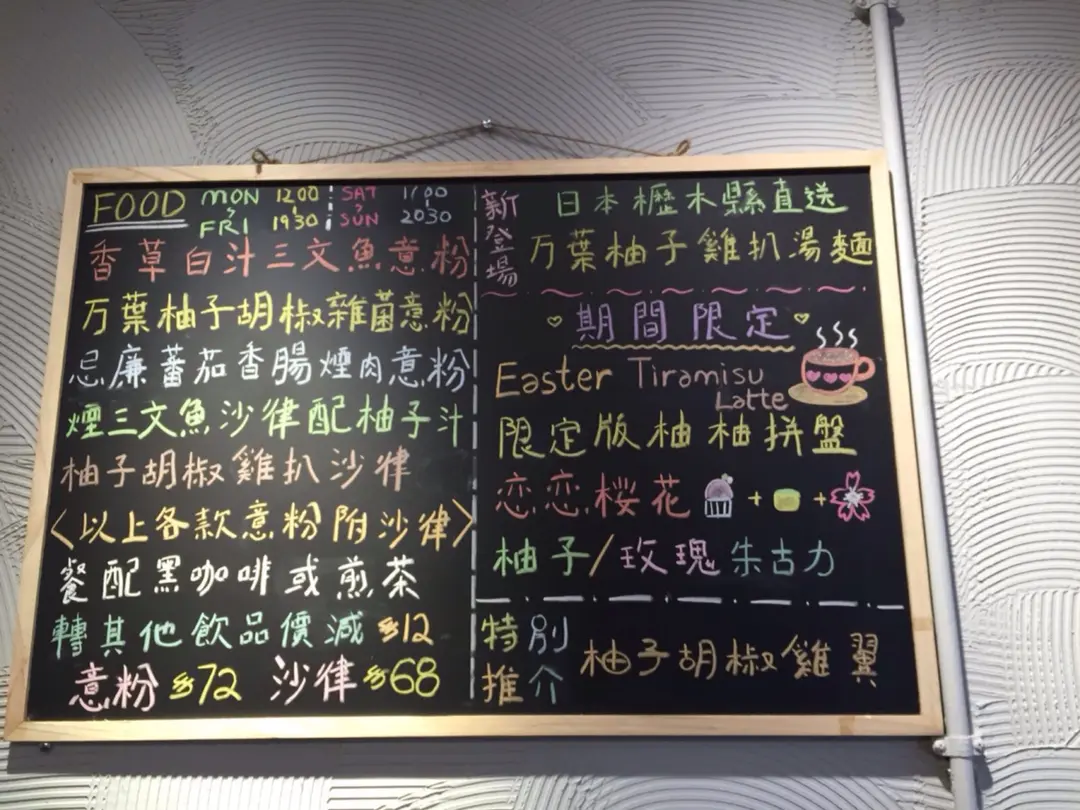 FOOD MON 1200 SAT 1100
FRI 1930 SUN 2030
香草白汁三文魚意粉
万葉柚子胡椒雜菌意粉
忌廉蕃茄香腸煙肉意粉
煙三文魚沙律配柚子汁
柚子胡椒雞扒沙律
<以上各款意粉附沙律>
餐配黑咖啡或煎茶
轉其他飲品價減$12
意粉$72 沙律$68
新登場
日本櫪木縣直送
万葉柚子雞扒湯麵
期間限定
Easter Tiramisu
Latte
限定版柚柚拼盤
恋恋桜花 + +
柚子/玫瑰朱古力
特別
推介
柚子胡椒雞翼